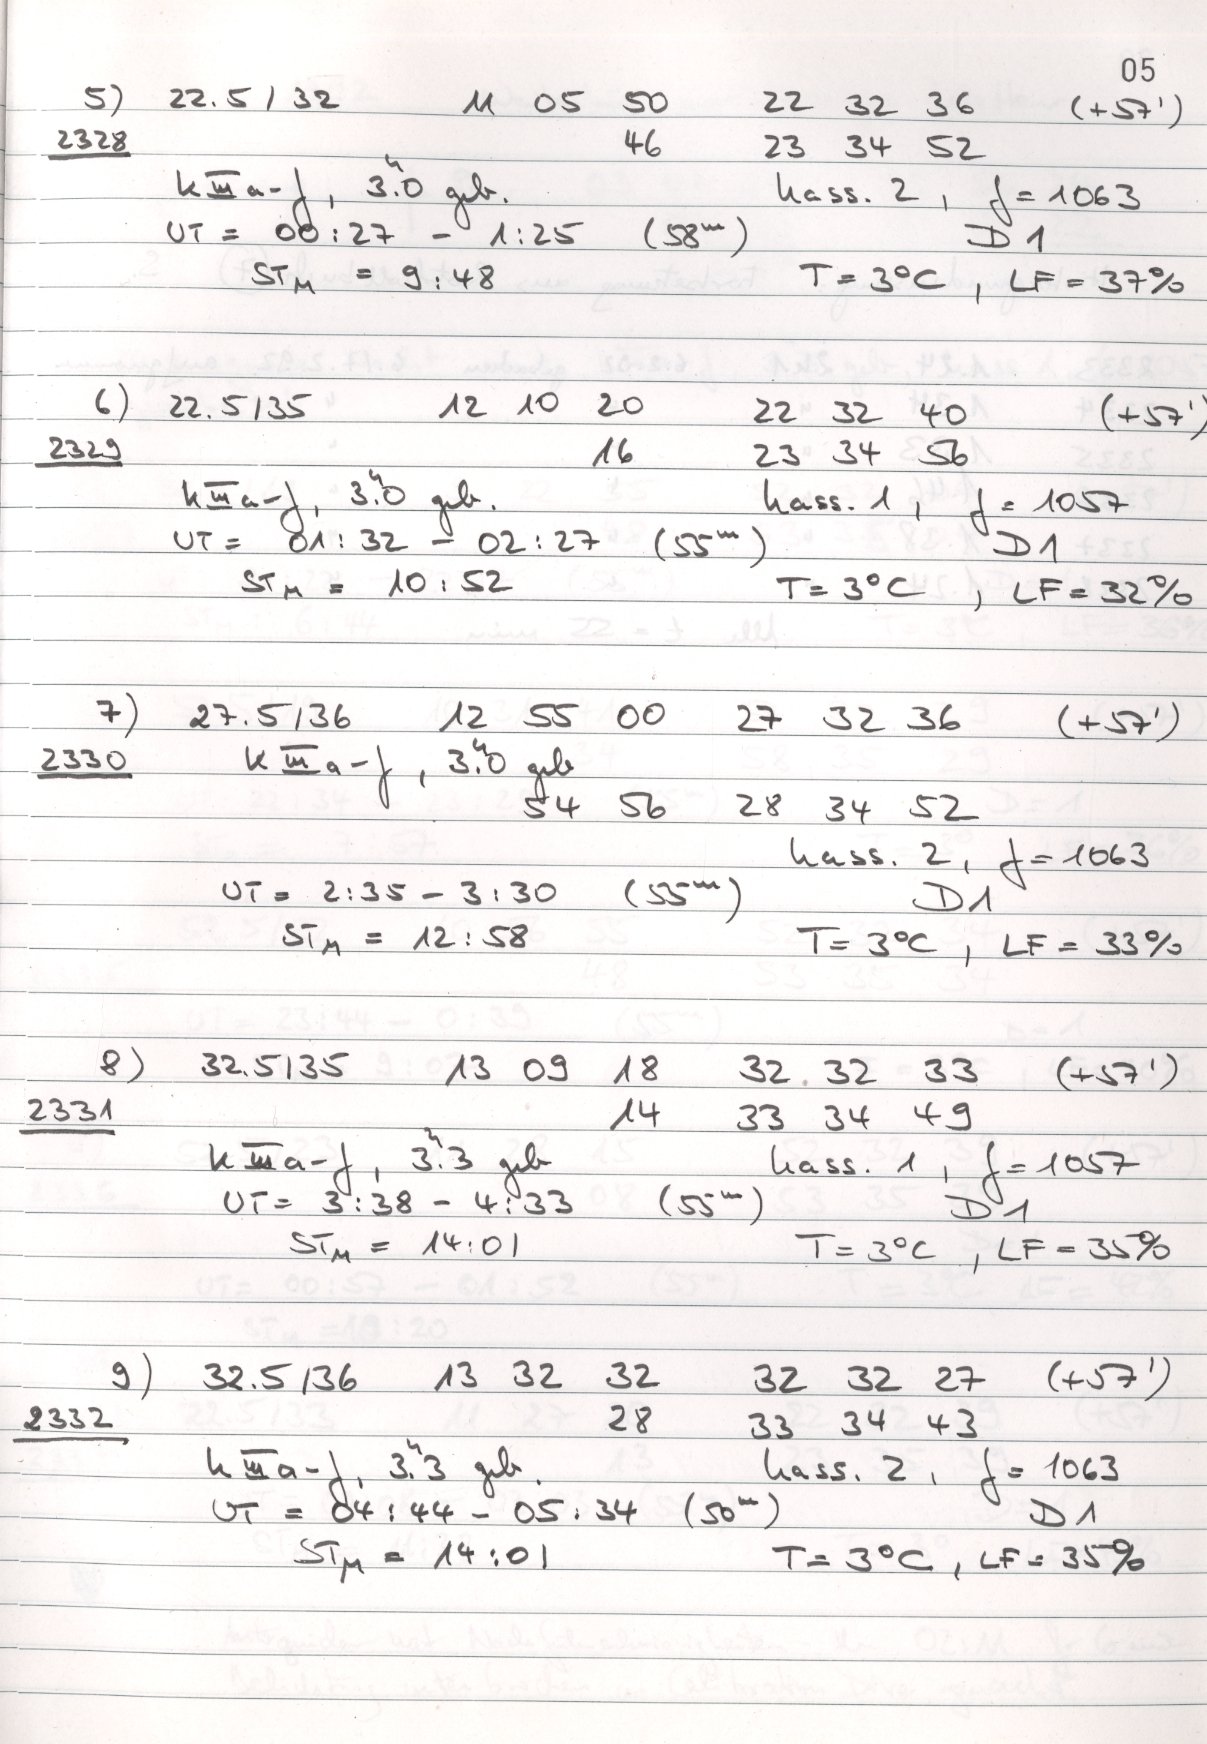 05
5) 22.5/32 11 05 50 22 32 36 (+57')
2328 46 23 34 52
K III a-f, 3.ʰ0 geb. Kass. 2, f = 1063
UT = 00:27 - 1:25 (58ᵐ) D1
STM = 9:48 T = 3°C, LF = 37%
6) 22.5/35 12 10 20 22 32 40 (+57')
2329 16 23 34 56
K III a-f, 3.ʰ0 geb. Kass. 1, f = 1057
UT = 01:32 - 02:27 (55ᵐ) D1
STM = 10:52 T = 3°C, LF = 32%
7) 27.5/36 12 55 00 27 32 36 (+57')
2330 K III a-f, 3.ʰ0 geb
54 56 28 34 52
Kass. 2, f = 1063
UT = 2:35 - 3:30 (55ᵐ) D1
STM = 12:58 T = 3°C, LF = 33%
8) 32.5/35 13 09 18 32 32 33 (+57')
2331 14 33 34 49
K III a-f, 3.ʰ3 geb Kass. 1, f = 1057
UT = 3:38 - 4:33 (55ᵐ) D1
STM = 14:01 T = 3°C, LF = 35%
9) 32.5/36 13 32 32 32 32 27 (+57')
2332 28 33 34 43
K III a-f, 3.ʰ3 geb. Kass. 2, f = 1063
UT = 04:44 - 05:34 (50ᵐ) D1
STM = 14:01 T = 3°C, LF = 35%